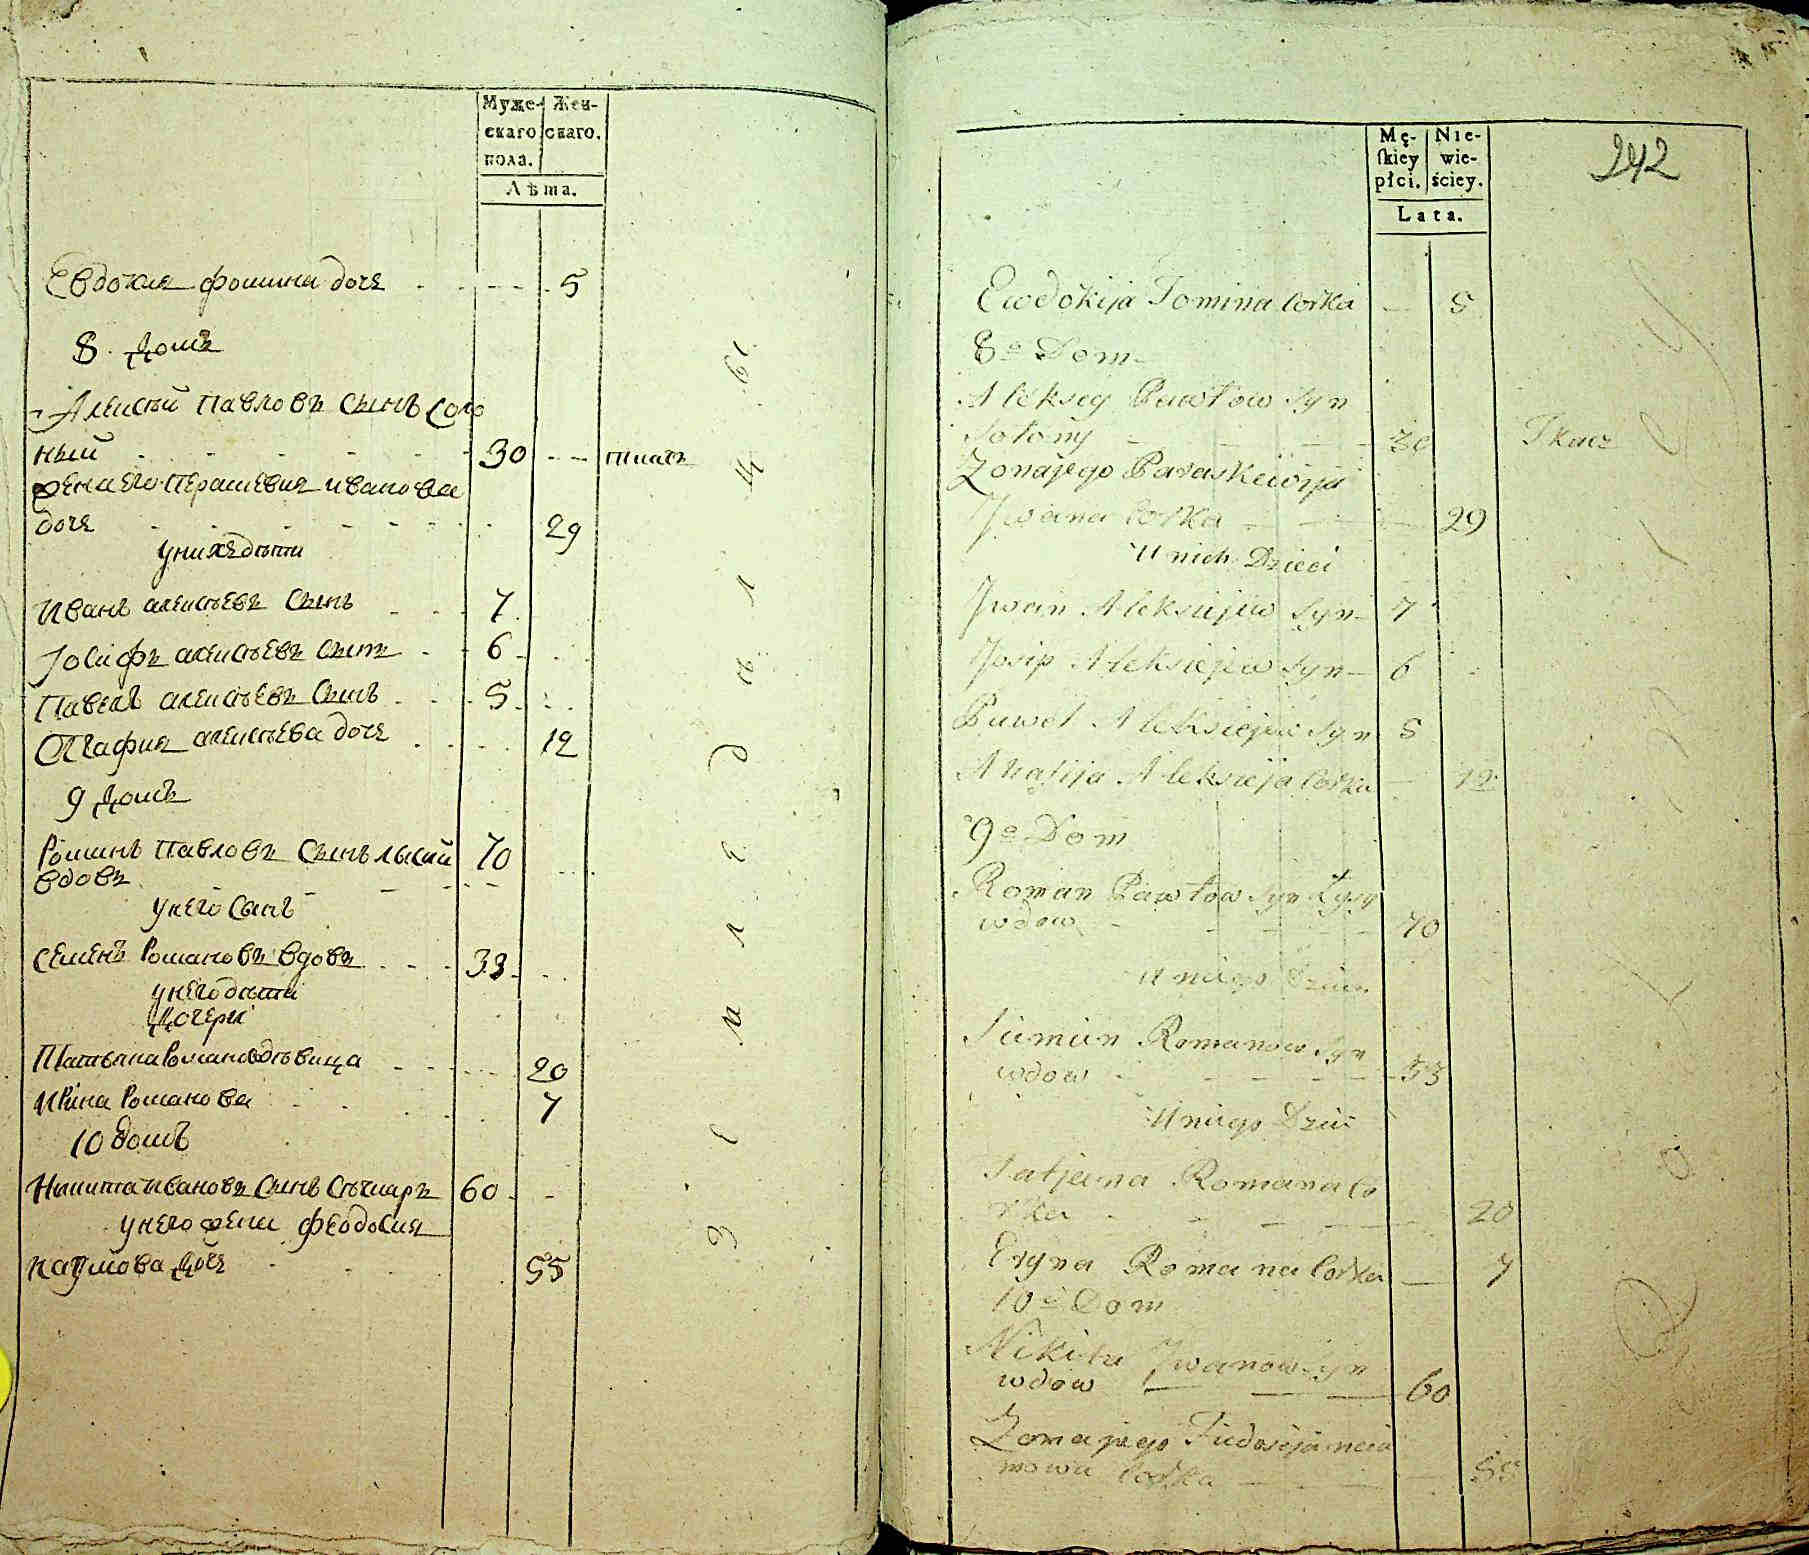 Муже-
скаго
пола.
Жен-
скаго.
Лѣта.
Евдокия фомина дочь 5
8. Домъ
Алексѣй Павловъ сынъ Соло
ный 30 ткачъ
жена его Перасковия иванова
дочь 29
у них дѣти
Иванъ алексѣевъ сынъ 7
Iосифъ алексѣевъ сынъ 6
Павелъ алексѣевъ сынъ 5
Агафия алексѣева дочь 12
9 Домъ
Романъ Павловъ сынъ лысий 70
вдовъ
у него сынъ
Семенъ Романовъ вдовъ 33
у него дѣти
Дочери
Татьяна Романова дѣвица 20
Ирина Романова 7
10 домъ
Никита ивановъ сынъ 60
у него жена феодосия
наумова дочь 55
земледѣлецы
Mę-
skiey
płci.
Nie-
wie-
ściey.
Lata.
242
Ewdokija Fomina corka 5
8o Dom
Aleksey Pawłow syn
Sołony 30 Tkacz
Zona jego Paraskewija
Jwana corka 29
U nich Dzieci
Jwan Aleksiejew syn 7
Josip Aleksiejew syn 6
Paweł Aleksiejew syn 5
Ahafija Aleksieja corka 12
9o Dom
Roman Pawłow syn Łysy
wdow 70
U niego Dzieci
Siemion Romanow syn
wdow 33
U niego Dzieci
Tatjana Romana co
rka 20
Eryna Romana corka 7
10o Dom
Nikita Jwanow syn
wdow 60
Zona jego Fiedosija nau
mowa corka 55